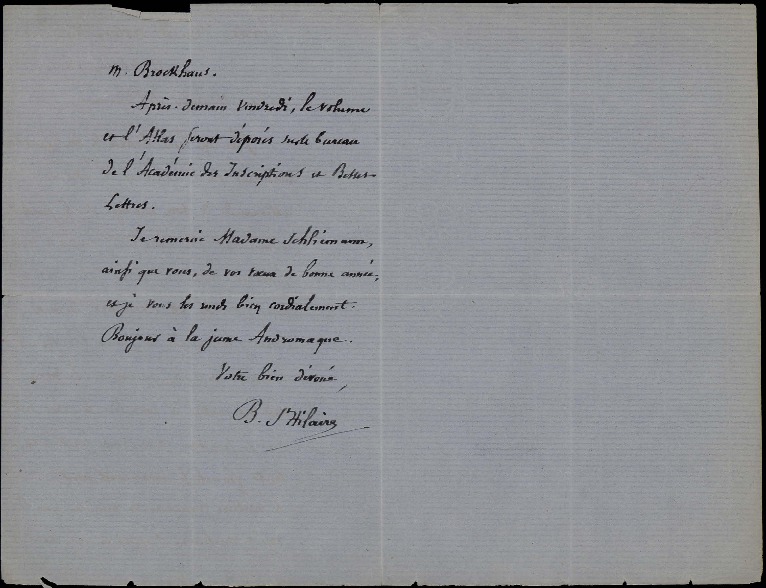 M. Brockhaus.
Après-demain Vendredi, le volume
et l'Atlas seront déposés sur le bureau
de l'Académie des Inscriptions et Belles-
Lettres.
Je remercie Madame Schliemann,
ainsi que vous, de vos vœux de bonne année,
et je vous les rends bien cordialement.
Bonjour à la jeune Andromaque.
Votre bien dévoué,
B. St Hilaire